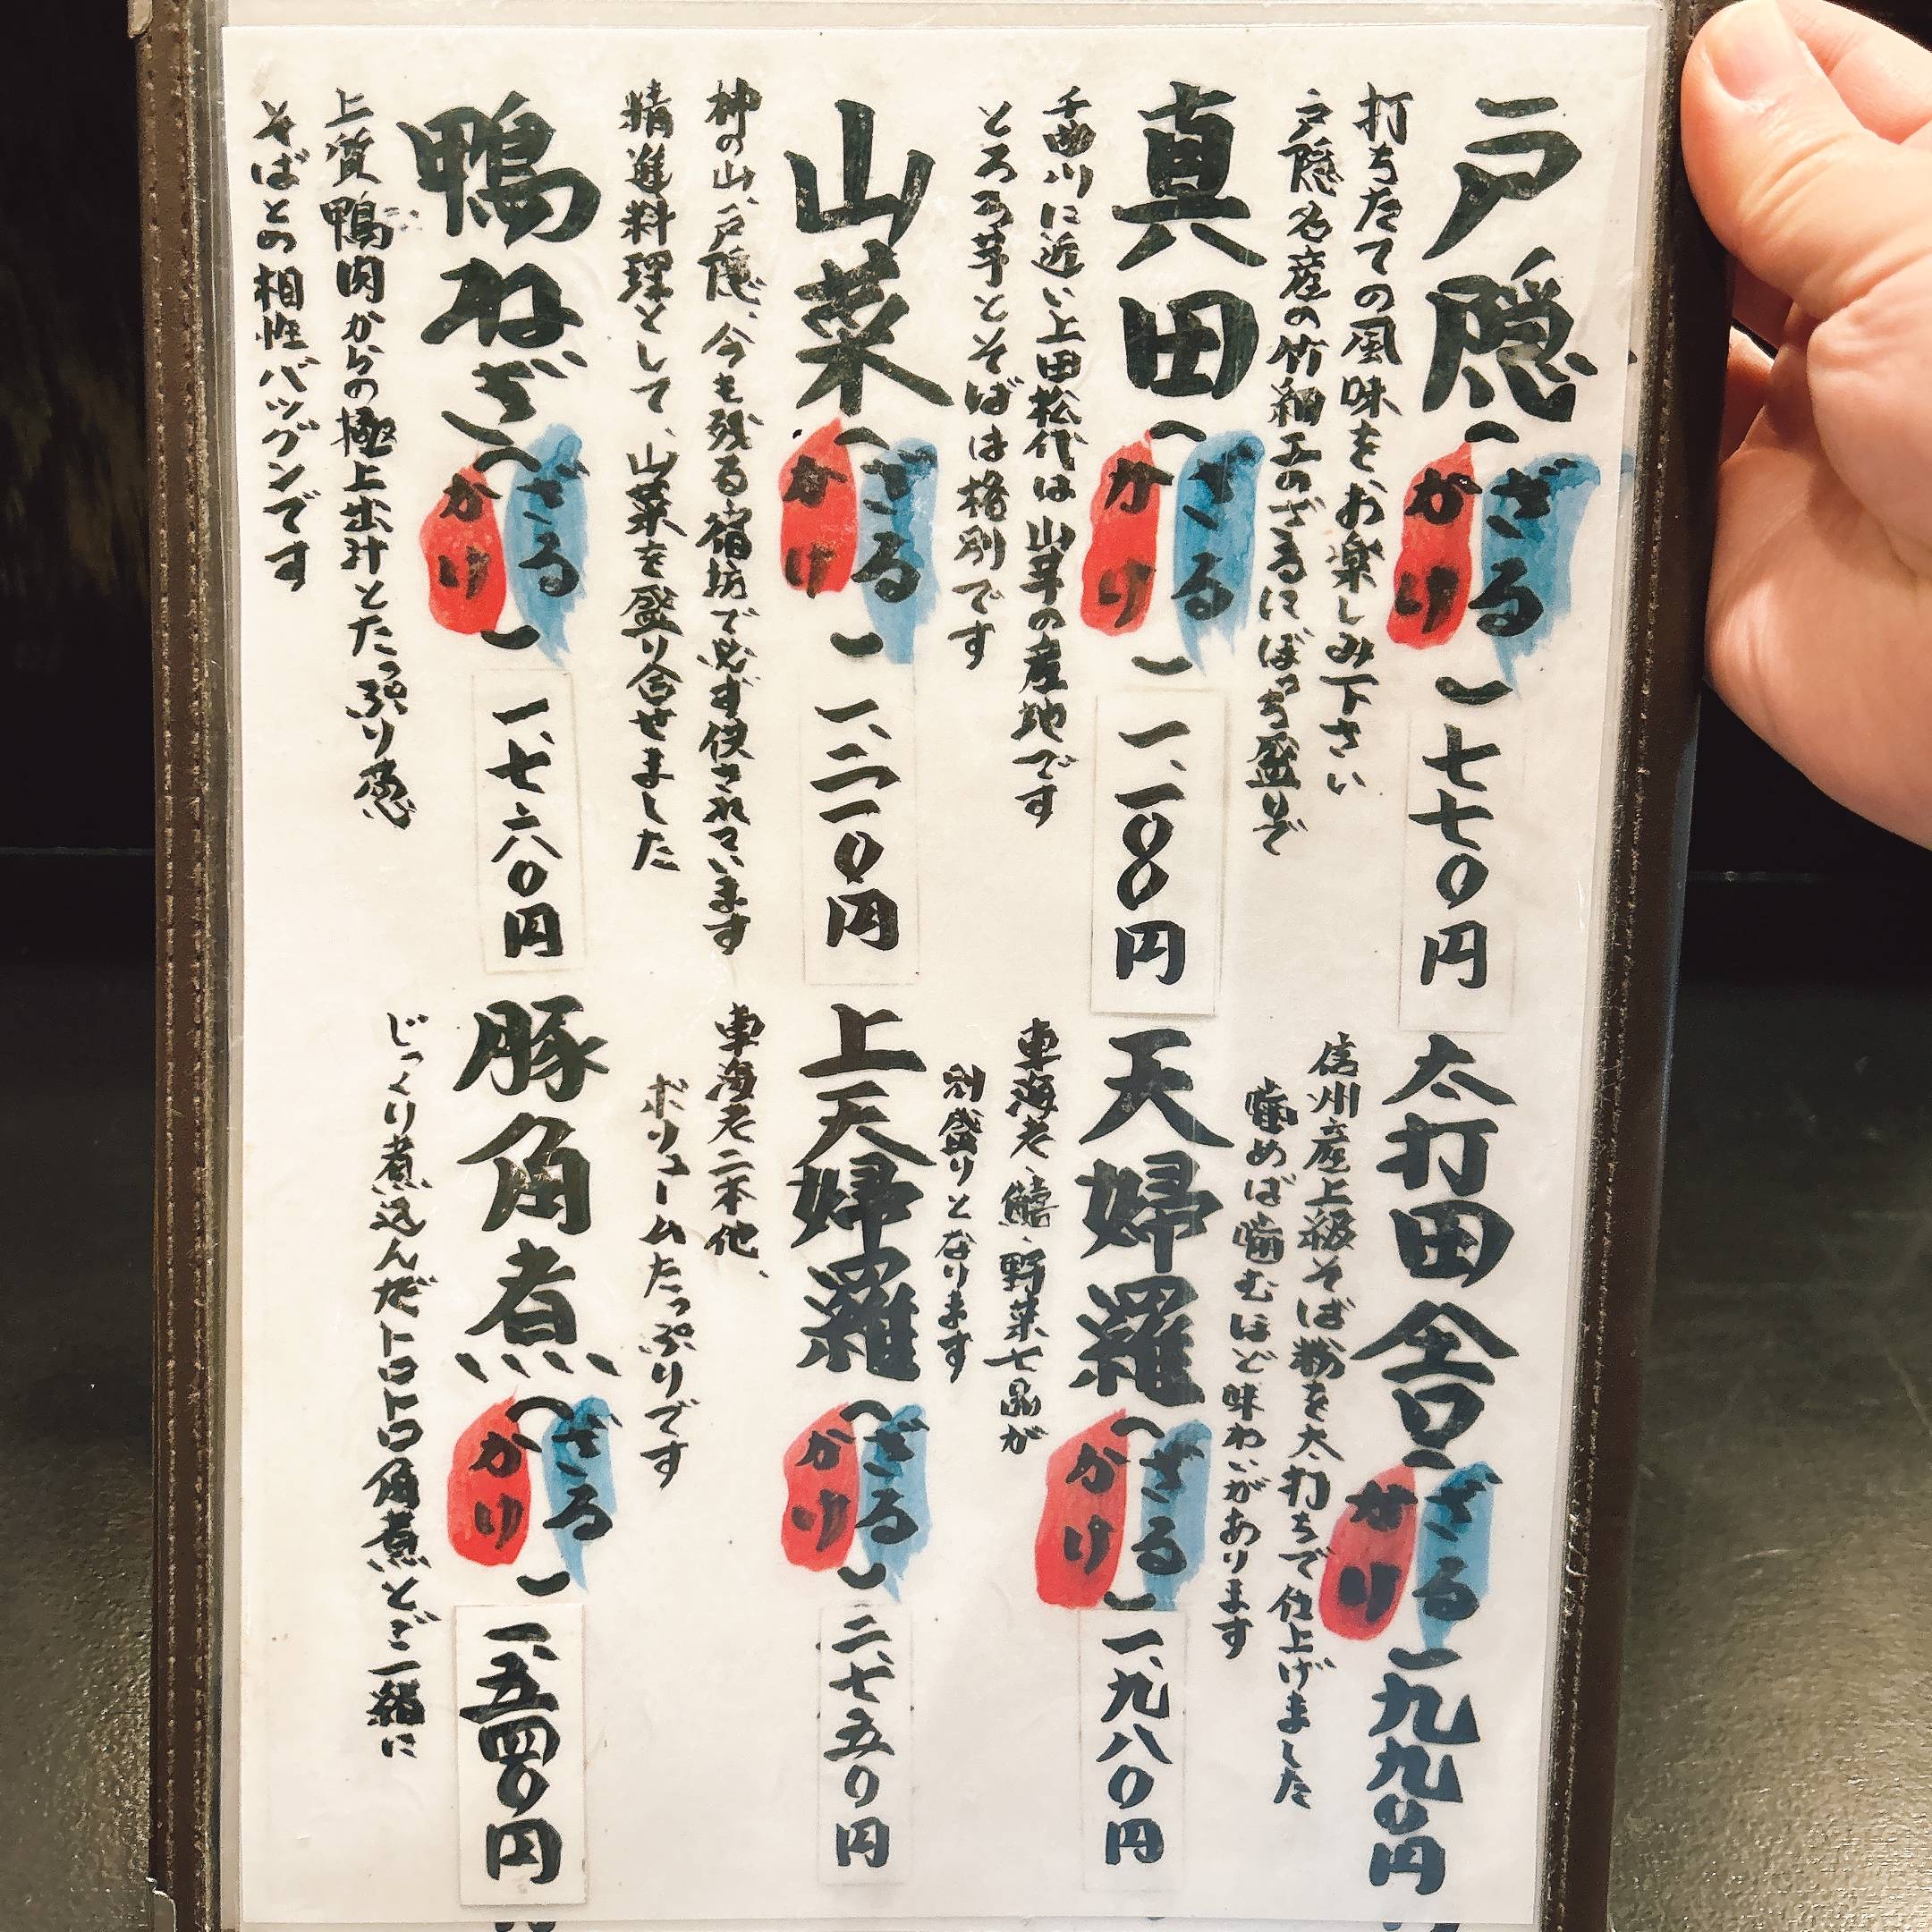 戸隠(ざる かけ)七七〇円
打ちたての風味を、お楽しみ下さい
戸隠名産の竹細工のざるにぼっち盛りで
真田(ざる かけ)一、一〇〇円
千曲川に近い上田松代は山芋の産地です
とろろ芋とそばは格別です
山菜(ざる かけ)一、二一〇円
神の山、戸隠、今も残る宿坊で必ず供されています
精進料理として、山菜を盛り合せました
鴨ねぎ(ざる かけ)一、七六〇円
上質鴨肉からの極上出汁とたっぷり葱
そばとの相性バツグンです
太打田舎(ざる かけ)九九〇円
信州産上級そば粉を太打ちで仕上げました
噛めば噛むほど味わいがあります
天婦羅(ざる かけ)一、九八〇円
車海老、鱚、野菜七品が
別盛りとなります
上天婦羅(ざる かけ)二、七五〇円
車海老二本他、
ボリュームたっぷりです
豚角煮(ざる かけ)一、五四〇円
じっくり煮込んだトロトロ角煮とご一緒に